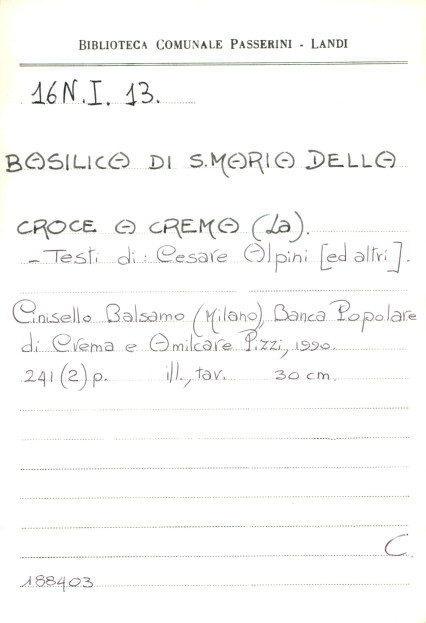 BIBLIOTECA COMUNALE PASSERINI - LANDI
16N.I. 13.
BASILICA DI S.MARIA DELLA
CROCE A CREMA (La).
- Testi di: Cesare Alpini [ed altri].
Cinisello Balsamo (Milano), Banca Popolare
di Crema e Amilcare Pizzi, 1990.
241 (2) p. ill., tav. 30 cm.
C.
188403